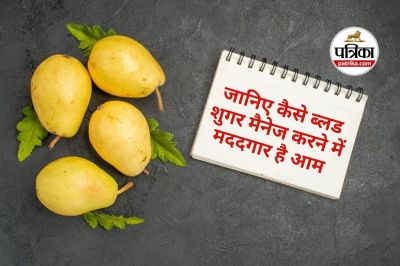 पत्रिका
patrika.com
जानिए कैसे ब्लड
शुगर मैनेज करने में
मददगार है आम